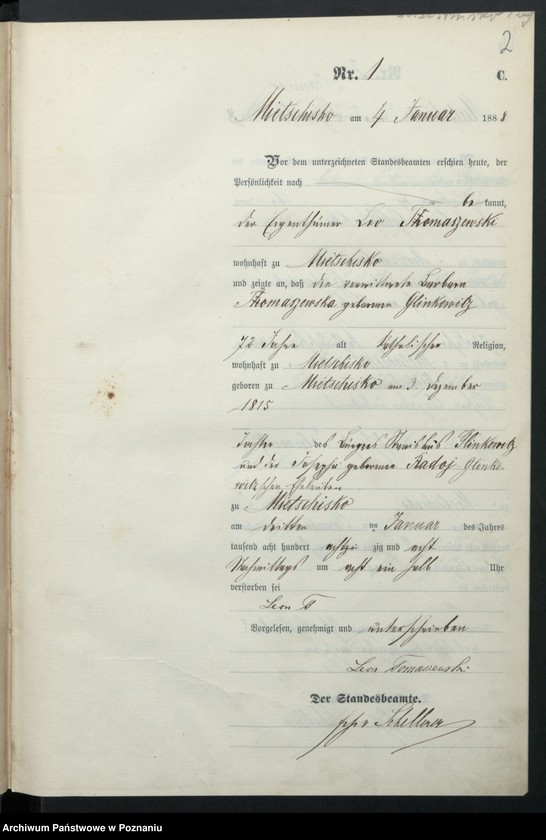 2
Nr. 1 C.
Mietschisko am 4 Januar 1888
Vor dem unterzeichneten Standesbeamten erschien heute, der
Persönlichkeit nach
be kannt,
der Eigenthümer Leo Thomaszewski
wohnhaft zu Mietschisko
und zeigte an, daß die verwittwete Barbara
Thomaszewska geborene Glinkewitz
72 Jahre alt katholischer Religion,
wohnhaft zu Mietschisko
geboren zu Mietschisko am 3. Dezember
1815
Tochter des Bürgers Stanislaus Glinkewitz
und der Josepha geborene Radoj Glinke-
witz'schen Eheleuten
zu Mietschisko
am dritten ten Januar des Jahres
tausend acht hundert achtzi zig und acht
Nachmittags um acht ein halb Uhr
verstorben sei
Leon T
Vorgelesen, genehmigt und unterschrieben
Leon Tomaszewski
Der Standesbeamte.
Archiwum Państwowe w Poznaniu